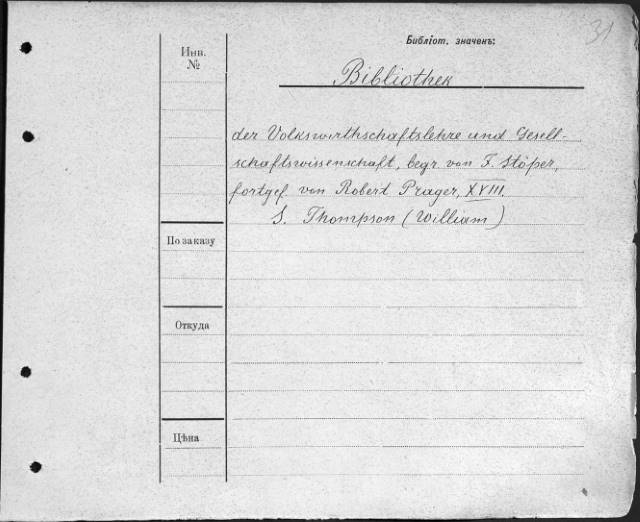 31
Библіот. значенъ:
Инв.
№
Bibliothek
der Volkswirthschaftslehre und Gesell-
schaftswissenschaft, begr. von F. Stöpel,
fortgef. von Robert Prager, XVIII.
S. Thompson (William)
По заказу
Откуда
Цѣна